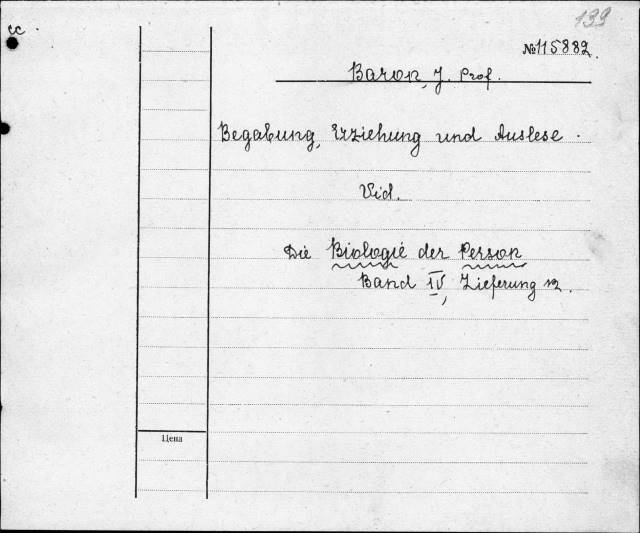 cc
139
№115882.
Baron, J. Prof.
Begabung, Erziehung und Auslese.
Vid.
Die Biologie der Person
Band IV, Lieferung 12.
Цена